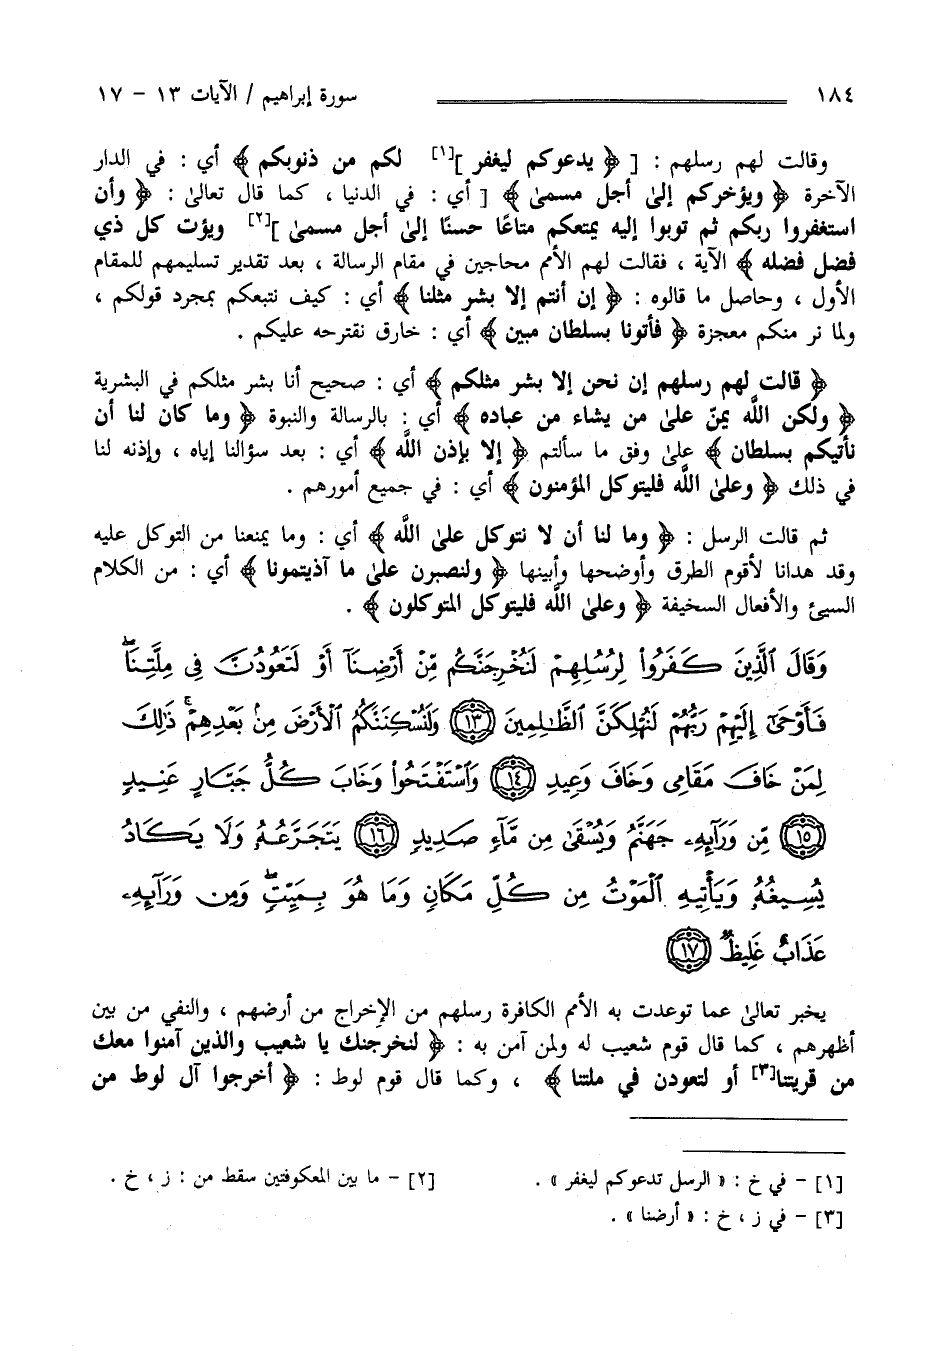 ١٨٤ سورة إبراهيم / الآيات ١٣ - ١٧
وقالت لهم رسلهم : [ ﴿ يدعوكم ليغفر ][١] لكم من ذنوبكم ﴾ أي : في الدار
الآخرة ﴿ ويؤخركم إلىٰ أجل مسمىٰ ﴾ [ أي : في الدنيا ، كما قال تعالىٰ : ﴿ وأن
استغفروا ربكم ثم توبوا إليه يمتعكم متاعًا حسنًا إلىٰ أجل مسمىٰ ][٢] ويؤت كل ذي
فضل فضله ﴾ الآية ، فقالت لهم الأمم محاجين في مقام الرسالة ، بعد تقدير تسليمهم للمقام
الأول ، وحاصل ما قالوه : ﴿ إن أنتم إلا بشر مثلنا ﴾ أي : كيف نتبعكم بمجرد قولكم ،
ولما نر منكم معجزة ﴿ فأتونا بسلطان مبين ﴾ أي : خارق نقترحه عليكم .
﴿ قالت لهم رسلهم إن نحن إلا بشر مثلكم ﴾ أي : صحيح أنا بشر مثلكم في البشرية
﴿ ولكن اللَّه يمنّ علىٰ من يشاء من عباده ﴾ أي : بالرسالة والنبوة ﴿ وما كان لنا أن
نأتيكم بسلطان ﴾ علىٰ وفق ما سألتم ﴿ إلا بإذن اللَّه ﴾ أي : بعد سؤالنا إياه ، وإذنه لنا
في ذلك ﴿ وعلىٰ اللَّه فليتوكل المؤمنون ﴾ أي : في جميع أمورهم .
ثم قالت الرسل : ﴿ وما لنا أن لا نتوكل علىٰ اللَّه ﴾ أي : وما يمنعنا من التوكل عليه
وقد هدانا لأقوم الطرق وأوضحها وأبينها ﴿ ولنصبرن علىٰ ما آذيتمونا ﴾ أي : من الكلام
السيئ والأفعال السخيفة ﴿ وعلىٰ اللَّه فليتوكل المتوكلون ﴾ .
وَقَالَ ٱلَّذِينَ كَفَرُواْ لِرُسُلِهِمْ لَنُخْرِجَنَّكُم مِّنْ أَرْضِنَآ أَوْ لَتَعُودُنَّ فِي مِلَّتِنَاۖ
فَأَوْحَىٰٓ إِلَيْهِمْ رَبُّهُمْ لَنُهْلِكَنَّ ٱلظَّٰلِمِينَ ١٣ وَلَنُسْكِنَنَّكُمُ ٱلْأَرْضَ مِنۢ بَعْدِهِمْۚ ذَٰلِكَ
لِمَنْ خَافَ مَقَامِي وَخَافَ وَعِيدِ ١٤ وَٱسْتَفْتَحُواْ وَخَابَ كُلُّ جَبَّارٍ عَنِيدٍ
١٥ مِّن وَرَآئِهِۦ جَهَنَّمُ وَيُسْقَىٰ مِن مَّآءٍ صَدِيدٍ ١٦ يَتَجَرَّعُهُۥ وَلَا يَكَادُ
يُسِيغُهُۥ وَيَأْتِيهِ ٱلْمَوْتُ مِن كُلِّ مَكَانٍ وَمَا هُوَ بِمَيِّتٍۖ وَمِن وَرَآئِهِۦ
عَذَابٌ غَلِيظٌ ١٧
يخبر تعالىٰ عما توعدت به الأمم الكافرة رسلهم من الإخراج من أرضهم ، والنفي من بين
أظهرهم ، كما قال قوم شعيب له ولمن آمن به : ﴿ لنخرجنك يا شعيب والذين آمنوا معك
من قريتنا[٣] أو لتعودن في ملتنا ﴾ ، وكما قال قوم لوط : ﴿ أخرجوا آل لوط من
[١] - في خ : « الرسل تدعوكم ليغفر » . [٢] - ما بين المعكوفتين سقط من : ز ، خ .
[٣] - في ز ، خ : « أرضنا » .